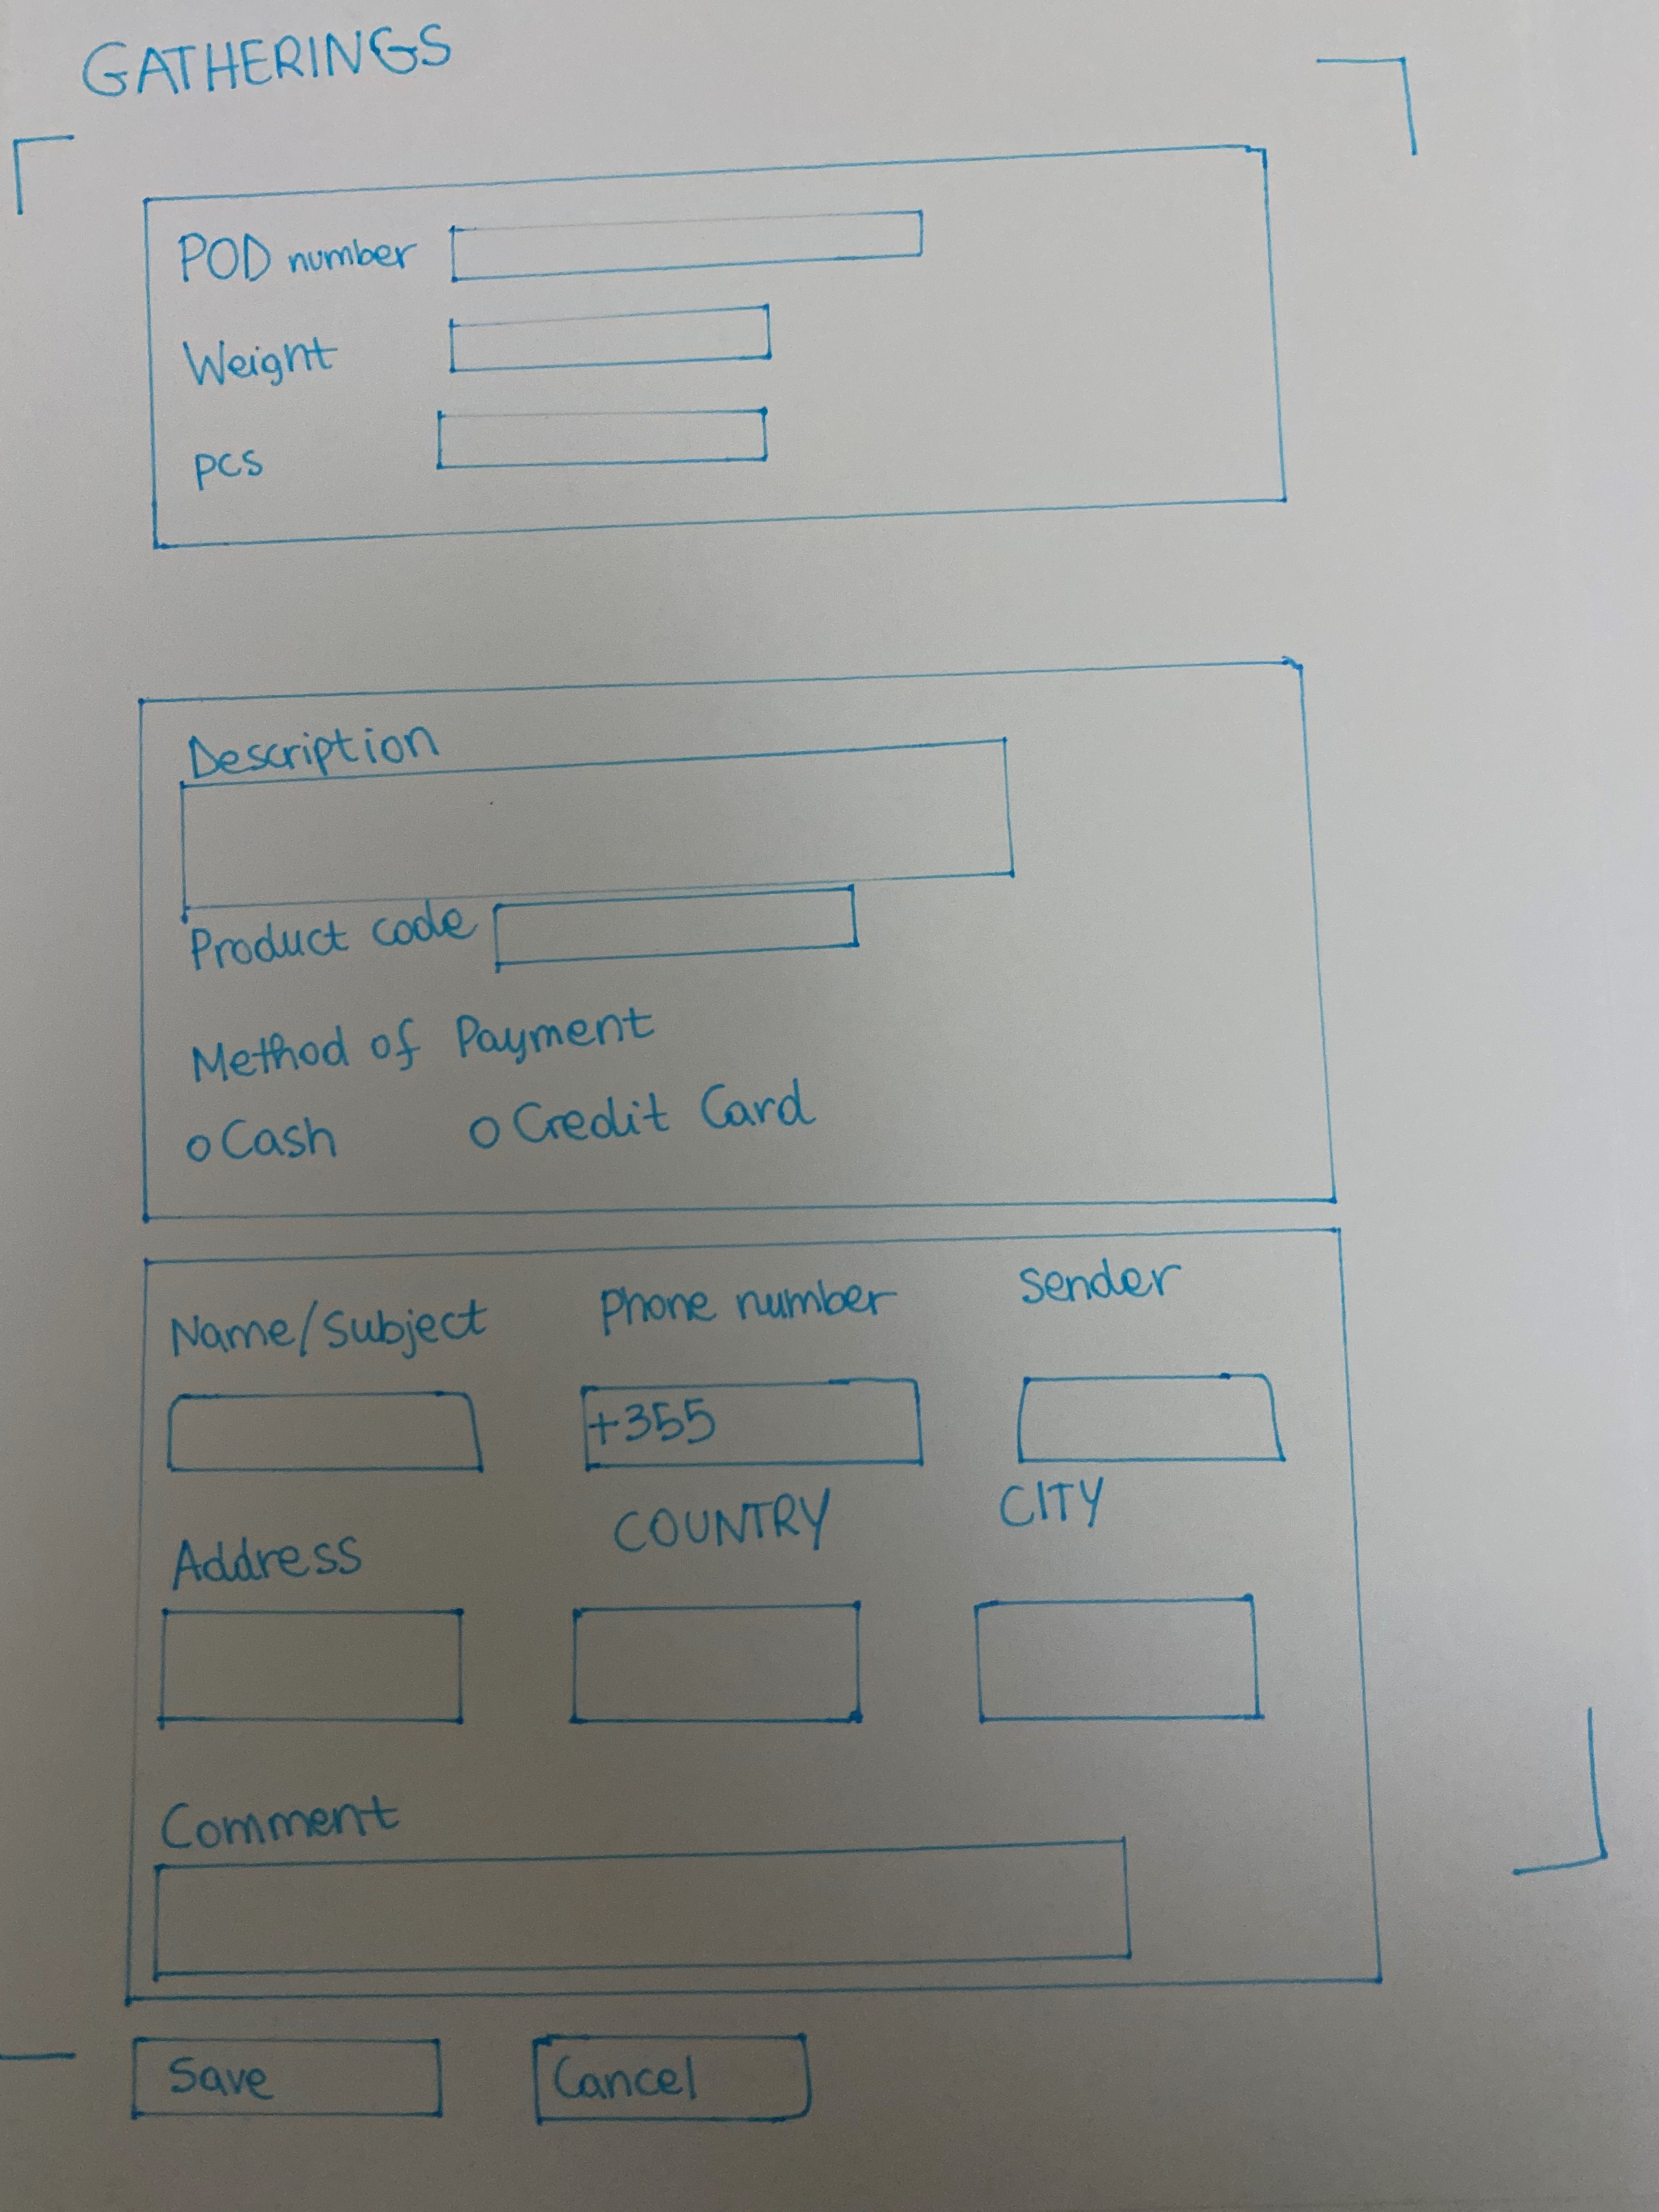 GATHERINGS
POD number
Weight
pcs
Description
Product code
Method of Payment
Cash Credit Card
Name/Subject Phone number Sender
+355
Address COUNTRY CITY
Comment
Save Cancel